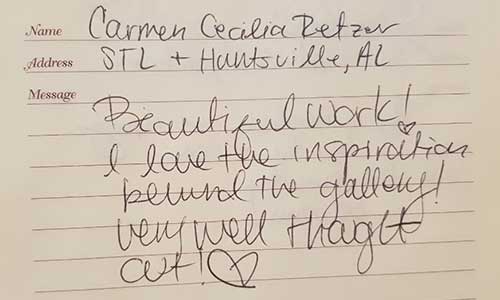 Name Carmen Cecilia Retzer
Address STL + Huntsville, AL
Message
Beautiful work!
I love the inspiration
behind the gallery!
very well thoght
out! ♡